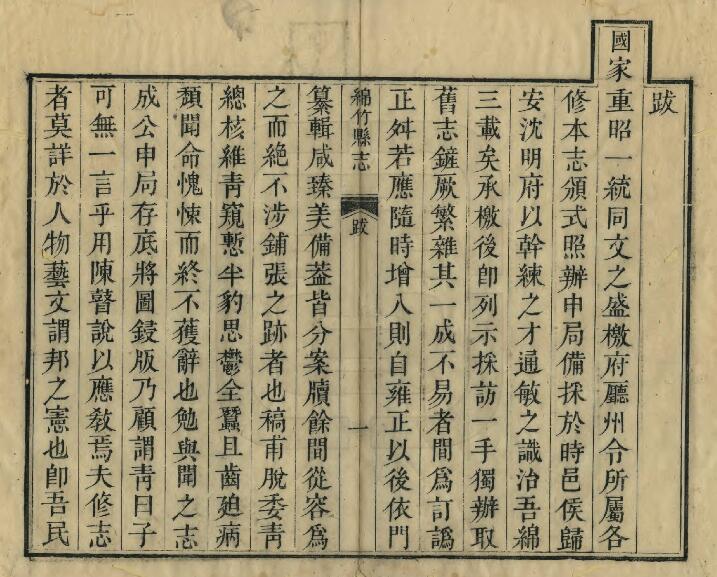 跋
國家重昭一統同文之盛檄府廳州令所屬各
修本志頒式照辦申局備採於時邑侯歸
安沈明府以幹練之才通敏之識治吾綿
三載矣承檄後卽列示採訪一手獨辦取
舊志鏟厥繁雜其一成不易者間爲訂譌
正舛若應隨時增入則自雍正以後依門
綿竹縣志 跋 一
纂輯咸臻美備葢皆分案牘餘間從容爲
之而絶不涉鋪張之跡者也稿甫脫委靑
總核維靑窺慙半豹思鬱全蠶且齒廹病
頽聞命愧悚而終不獲辭也勉與聞之志
成公申局存底將圖鋟版乃顧謂靑曰子
可無一言乎用陳瞽說以應敎焉夫修志
者莫詳於人物藝文謂邦之憲也卽吾民